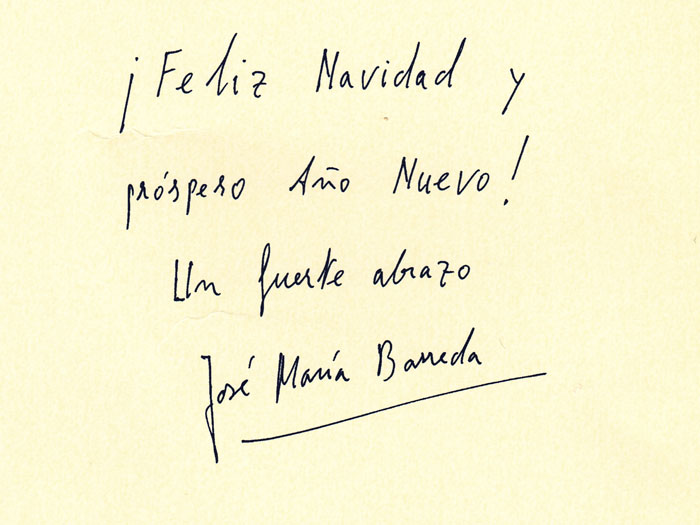 ¡Feliz Navidad y
próspero Año Nuevo!
Un fuerte abrazo
José María Barreda